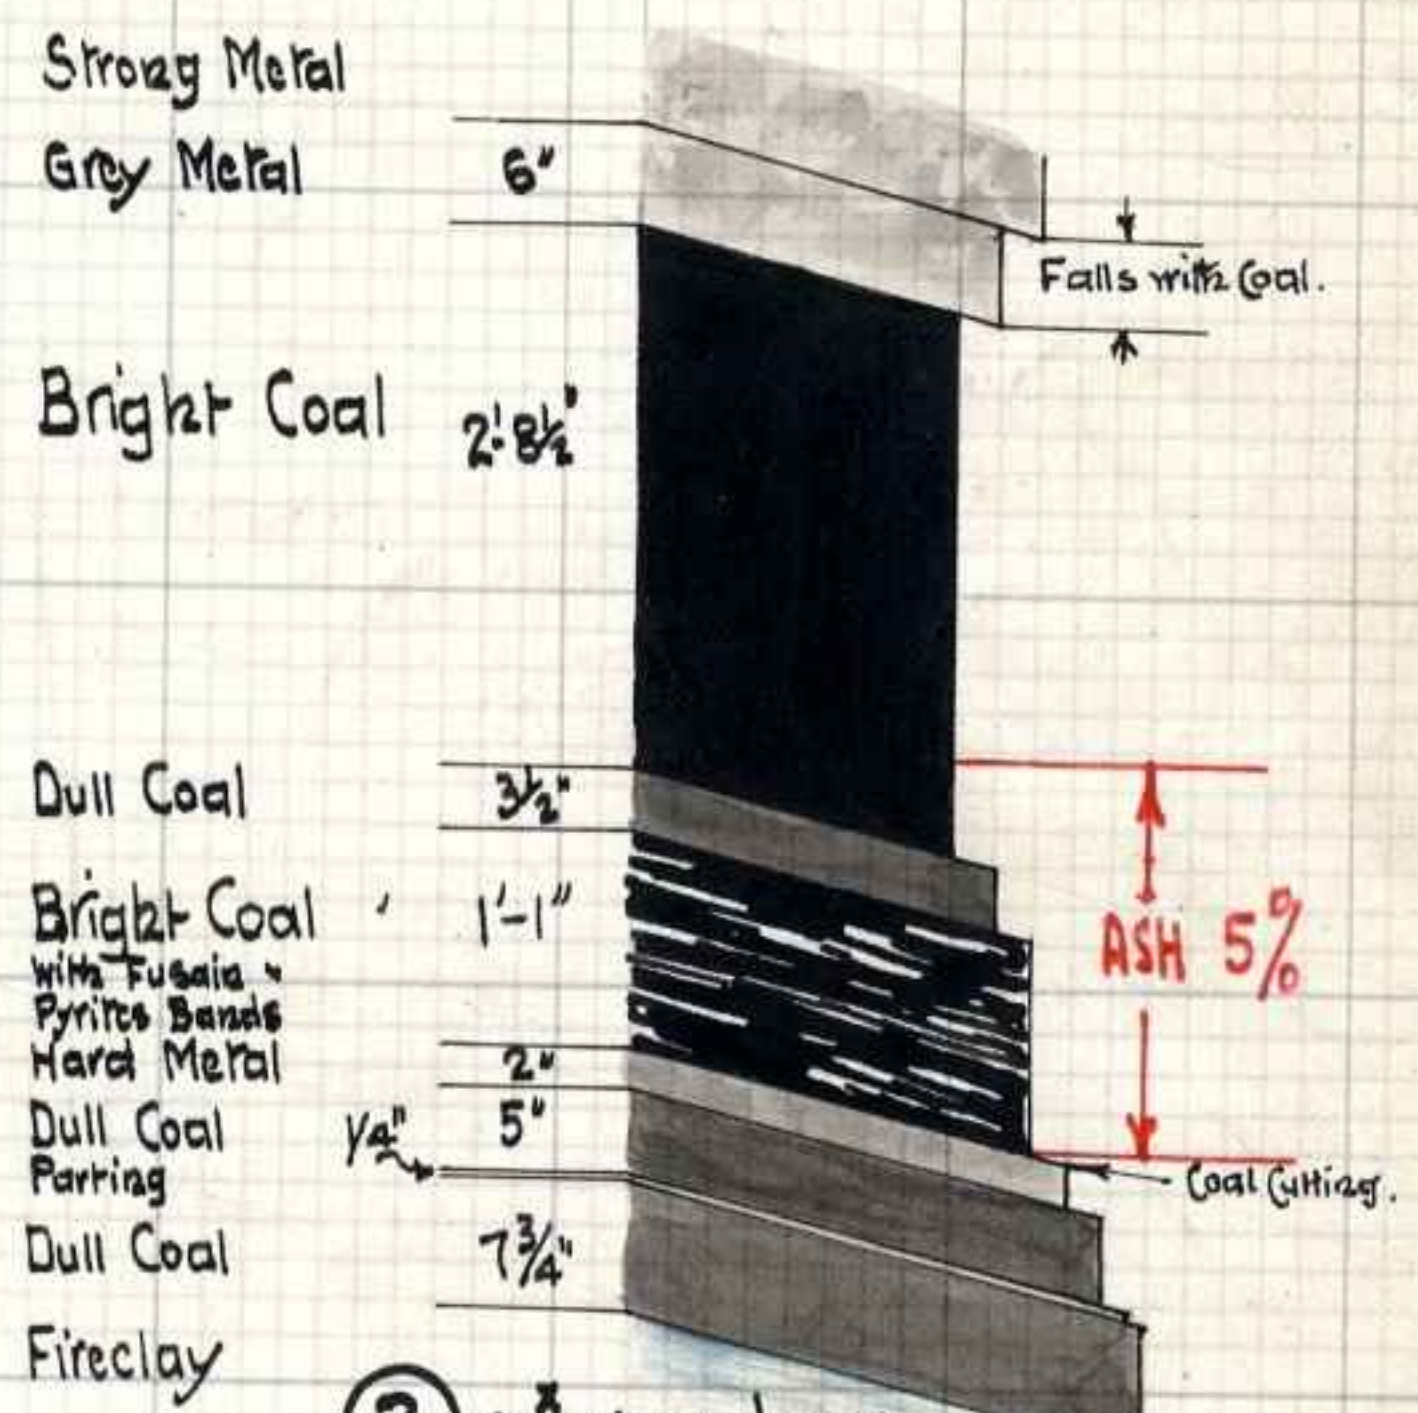 Strong Metal
Grey Metal 6"
Falls with Coal.
Bright Coal 2'.8½"
Dull Coal 3½"
Bright Coal 1'-1"
with Fusain &
Pyrites Bands
ASH 5%
Hard Metal 2"
Dull Coal 5"
Parting 1/4"
Coal Cutting.
Dull Coal 7¾"
Fireclay